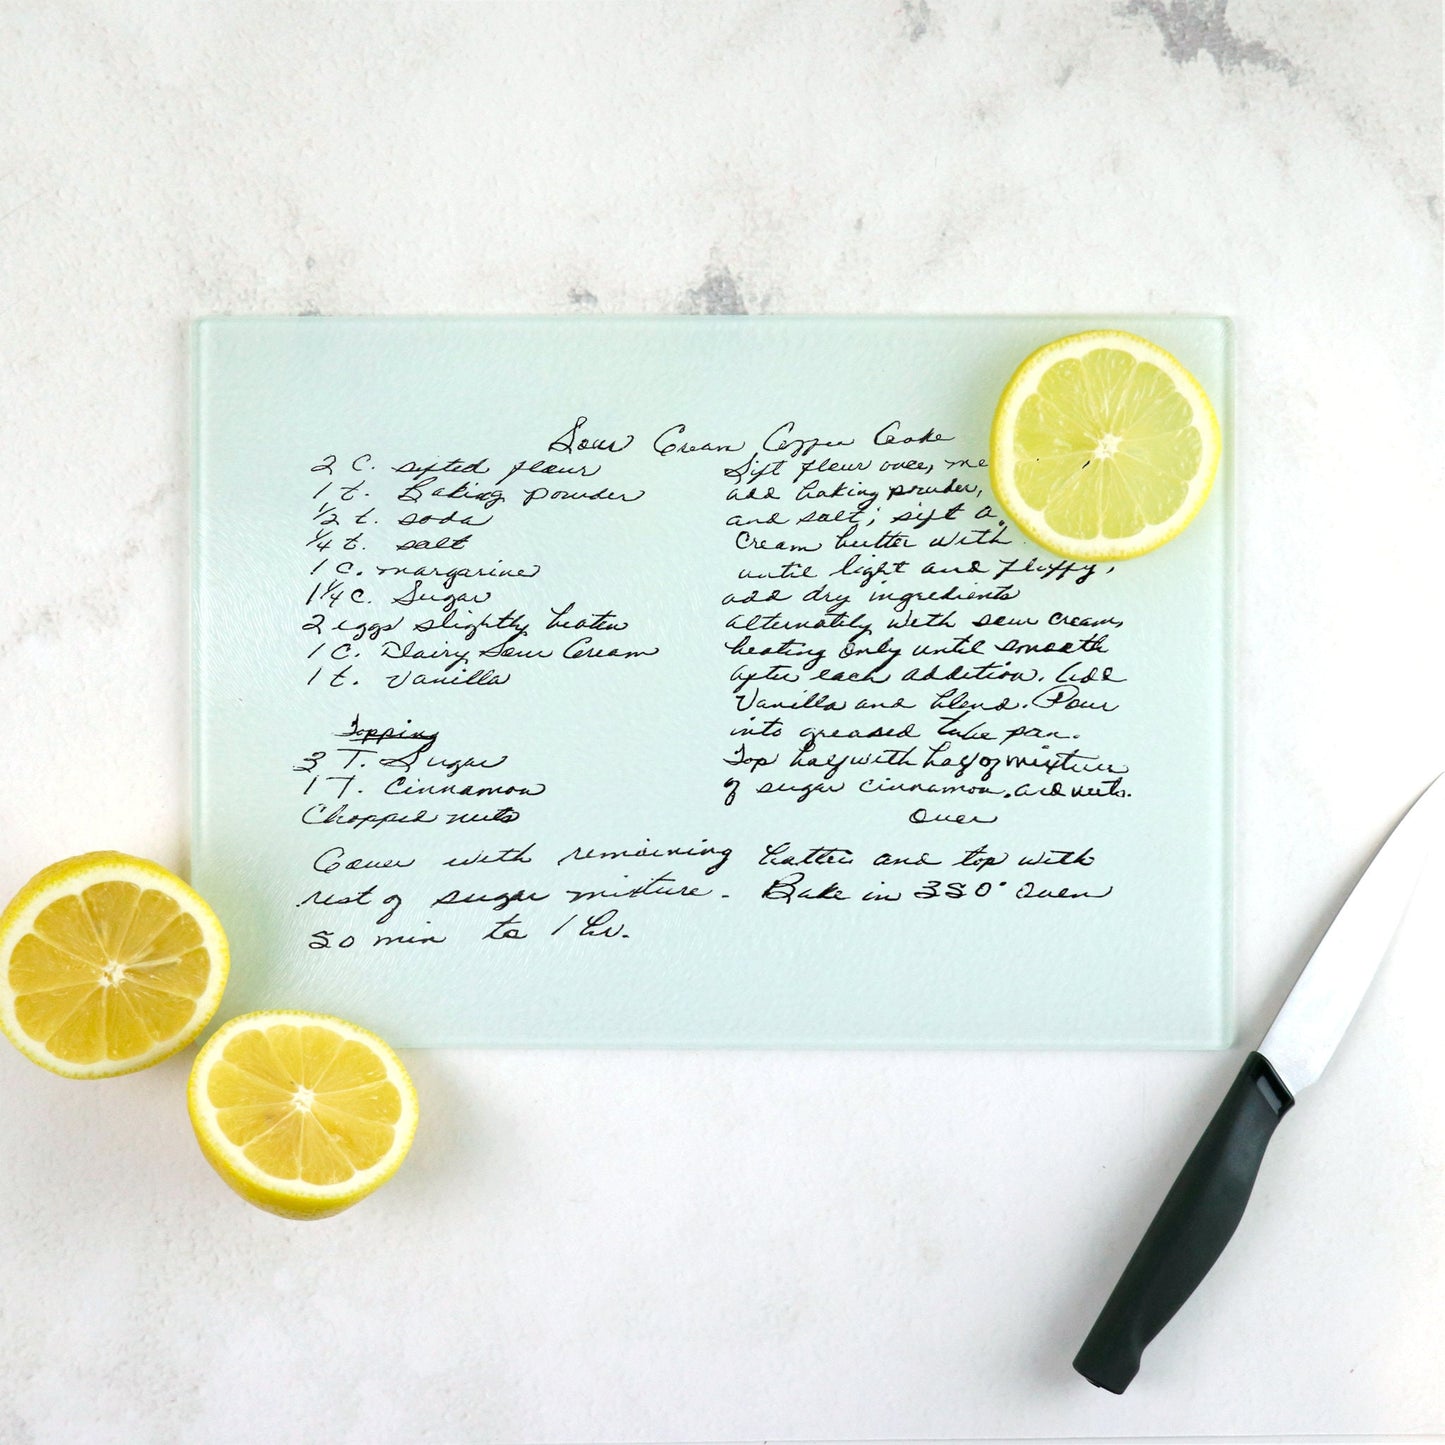 Sour Cream Coffee Cake
2 C. sifted flour
1 t. Baking powder
1/2 t. soda
1/4 t. salt
1 C. margarine
1 1/4 C. Sugar
2 eggs slightly beaten
1 C. Dairy Sour Cream
1 t. Vanilla
Topping
3 T. Sugar
1 T. Cinnamon
Chopped nuts
Sift flour once, me
add baking powder,
and salt; sift a
Cream butter with
until light and fluffy,
add dry ingredients
alternately with sour cream,
beating only until smooth
after each addition. Add
Vanilla and blend. Pour
into greased tube pan.
Top half with half of mixture
of sugar cinnamon, and nuts.
Over
Cover with remaining batter and top with
rest of sugar mixture. Bake in 350° Oven
50 min to 1 hr.